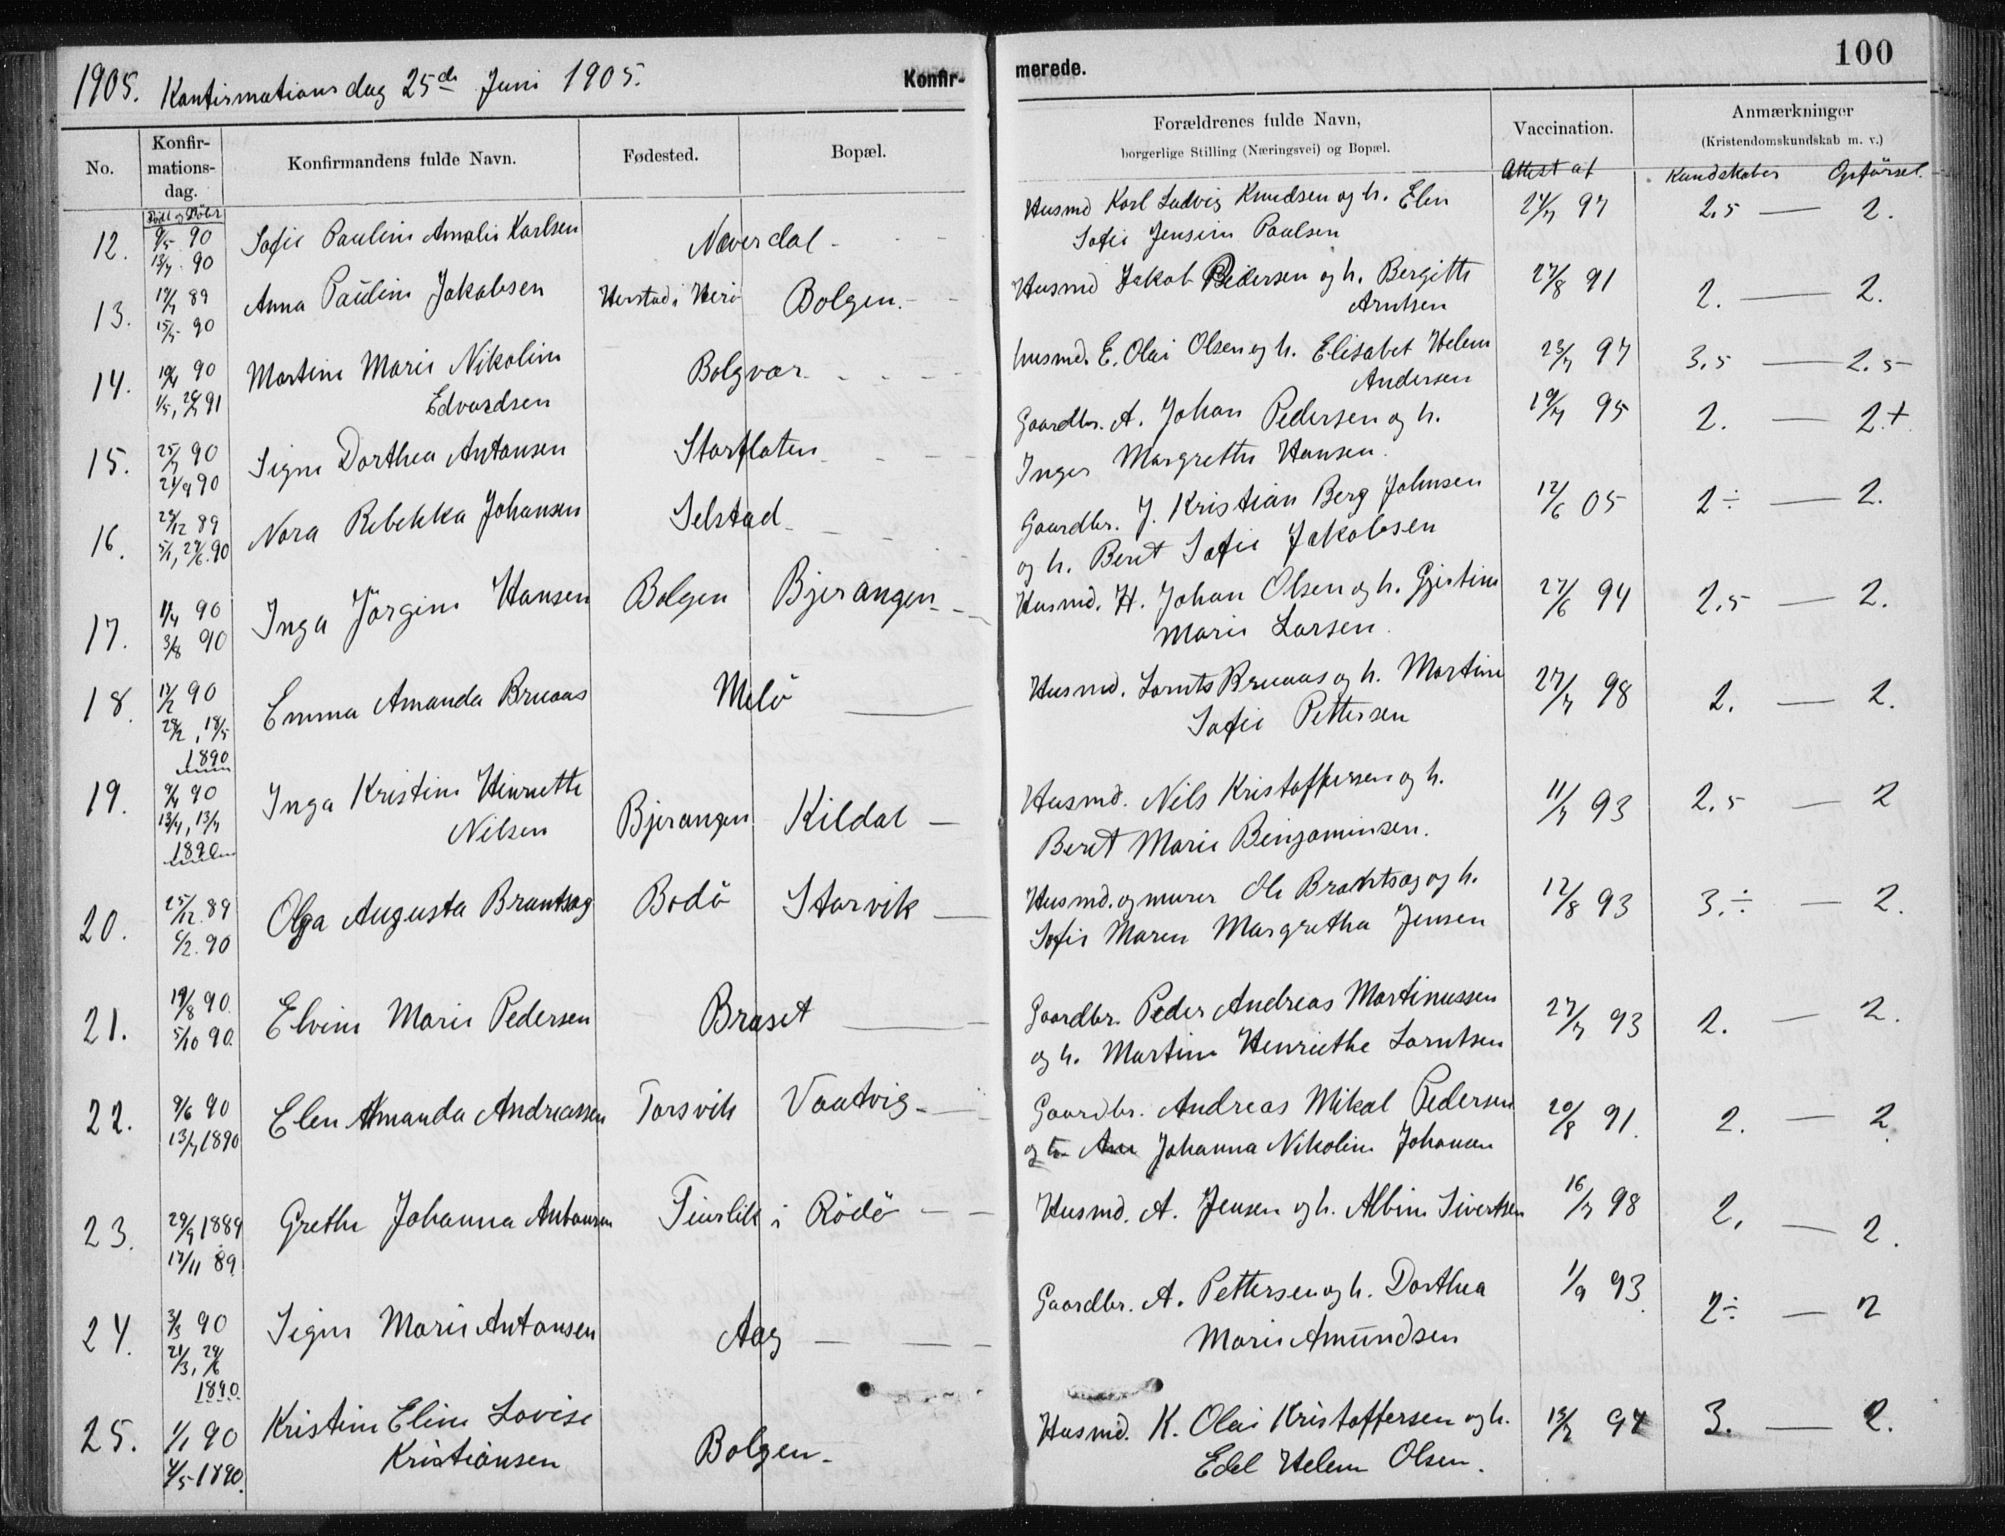 1905. Konfirmationsdag 25de Juni 1905.
Konfir-
merede.
100
No.
Konfir-
mations-
dag.
Konfirmandens fulde Navn.
Fødested.
Bopæl.
Forældrenes fulde Navn,
borgerlige Stilling (Næringsvei) og Bopæl.
Vaccination.
Anmærkninger
(Kristendomskundskab m. v.)
Født og Døbt
Attest af
Kundskaber Opførsel.
12. 9/5 90 Sofie Pauline Amalie Karlsen Næverdal - Husmd Karl Ludvig Knudsen og h. Elen 97 2.5 — 2.
13/7 90 Sofie Jensine Paulsen
13. 89 Anna Pauline Jakobsen Herstad i Herø Bolgen. - Husmd Jakob Pedersen og h. Bergitte 27/8 91 2. — 2.
15/5 90 Arntsen
14. 90 Martine Marie Nikoline Bolgvær. Husmd. E. Olai Olsen og h. Elisabet Helene 23/7 97 3.5 — 2.5
91 Edvardsen Andersen
15. 25/7 90 Signe Dorthea Antonsen Storflaten Gaardbr. A. Johan Pedersen og h. 19/7 95 2. — 2.+
21/9 90 Inger Margrethe Hansen.
16. 89 Nora Rebekka Johansen Selstad Gaardbr. J. Kristian Berg Johnsen 12/6 05 2÷ — 2.
5/1, 29/6. 90 og h. Beret Sofie Jakobsen
17. 90 Inga Jørgine Hansen Bolgen Bjerangen Husmd. H. Johan Olsen og h. Gjertine 27/6 94 2.5 — 2.
3/8 90 Marie Larsen.
18. 17/2 90 Emma Amanda Bruaas Melø — Husmd. Lornts Bruaas og h. Martine 27/7 98 2. — 2.
28/2, 18/5 Sofie Pettersen
1890
19. 90 Inga Kristine Hinrette Bjerangen Kildal — Husmd. Nils Kristoffersen og h. 11/7 93 2.5 — 2
13/4, 13/7 Nilsen Beret Marie Benjaminsen.
1890
20. 25/12. 89 Olga Augusta Brantsæg Bodø Storvik — Husmd. og murer Ole Brantsæg og h. 12/8 93 3.÷ — 2.
/2. 90 Sofie Maren Margretha Jensen
21. 19/8 90. Elvine Marie Pedersen Braset — Gaardbr. Peder Andreas Martinussen 27/7 93 2. — 2.
5/10 90. og h. Martine Henriethe Lorntsen
22. 9/6 90 Elen Amanda Andreassen Torsvik Vaatvig - Gaardbr. Andreas Mikal Pedersen 20/8 91. 2. — 2.
13/7 1890 og h. Johanna Nikoline Johansen
23. 29/9 1889 Grethe Johanna Antonsen i Rødø — Husmd. A. Jensen og h. Albine Sivertsen 16/7 98 2. — 2.
17/11 89. 
24. 3/3 90 Signe Marie Antonsen Aag — Gaardbr. A. Pettersen og h. Dorthea 1/9 93. 2÷ — 2
21/3, 29/6 Marie Amundsen
1890.
25. 1/1 90 Kristine Eline Lovise Bolgen. Husmd. K. Olai Kristoffersen og h. 3. — 2.
4/5 1890. Kristiansen Edel Helene Olsen.